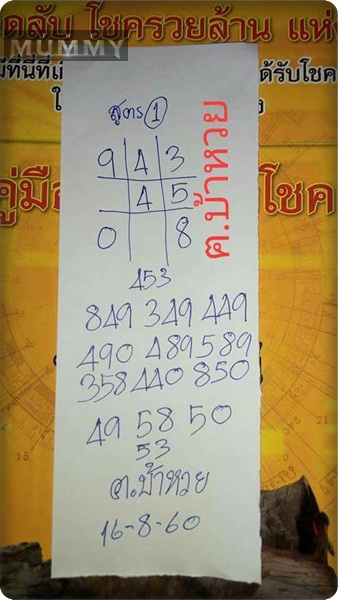 MUMMY
โชครวยล้าน
ได้รับโชค
สูตร 1
9 4 3
4 5
0 8
ต.บ้าหวย
453
849 349 449
490 489 589
358 440 850
49 58 50
53
ต.บ้าหวย
16-8-60
คู่มือ
โชค